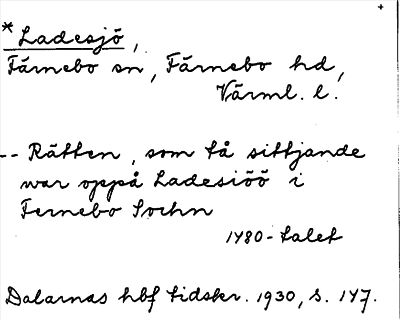 *Ladesjö,
Färnebo sn, Färnebo hd,
Värml. l.
-- Rätten, som tå sittjande
war oppå Ladesiöö i
Fernebo Sochn
1480-talet
Dalarnas hbf tidskr. 1930, s. 147.